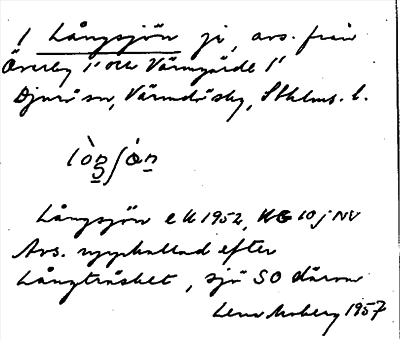 1 Långsjön sjö, avs. från
Överby 1 och Värmgärde 1
Djurö sn, Värmdö skg, Sthlms. l.
Långsjön ek 1952, KG 10 j NV
Avs. uppkallad efter
Långträsket, sjö SO därom
Lena Moberg 1957